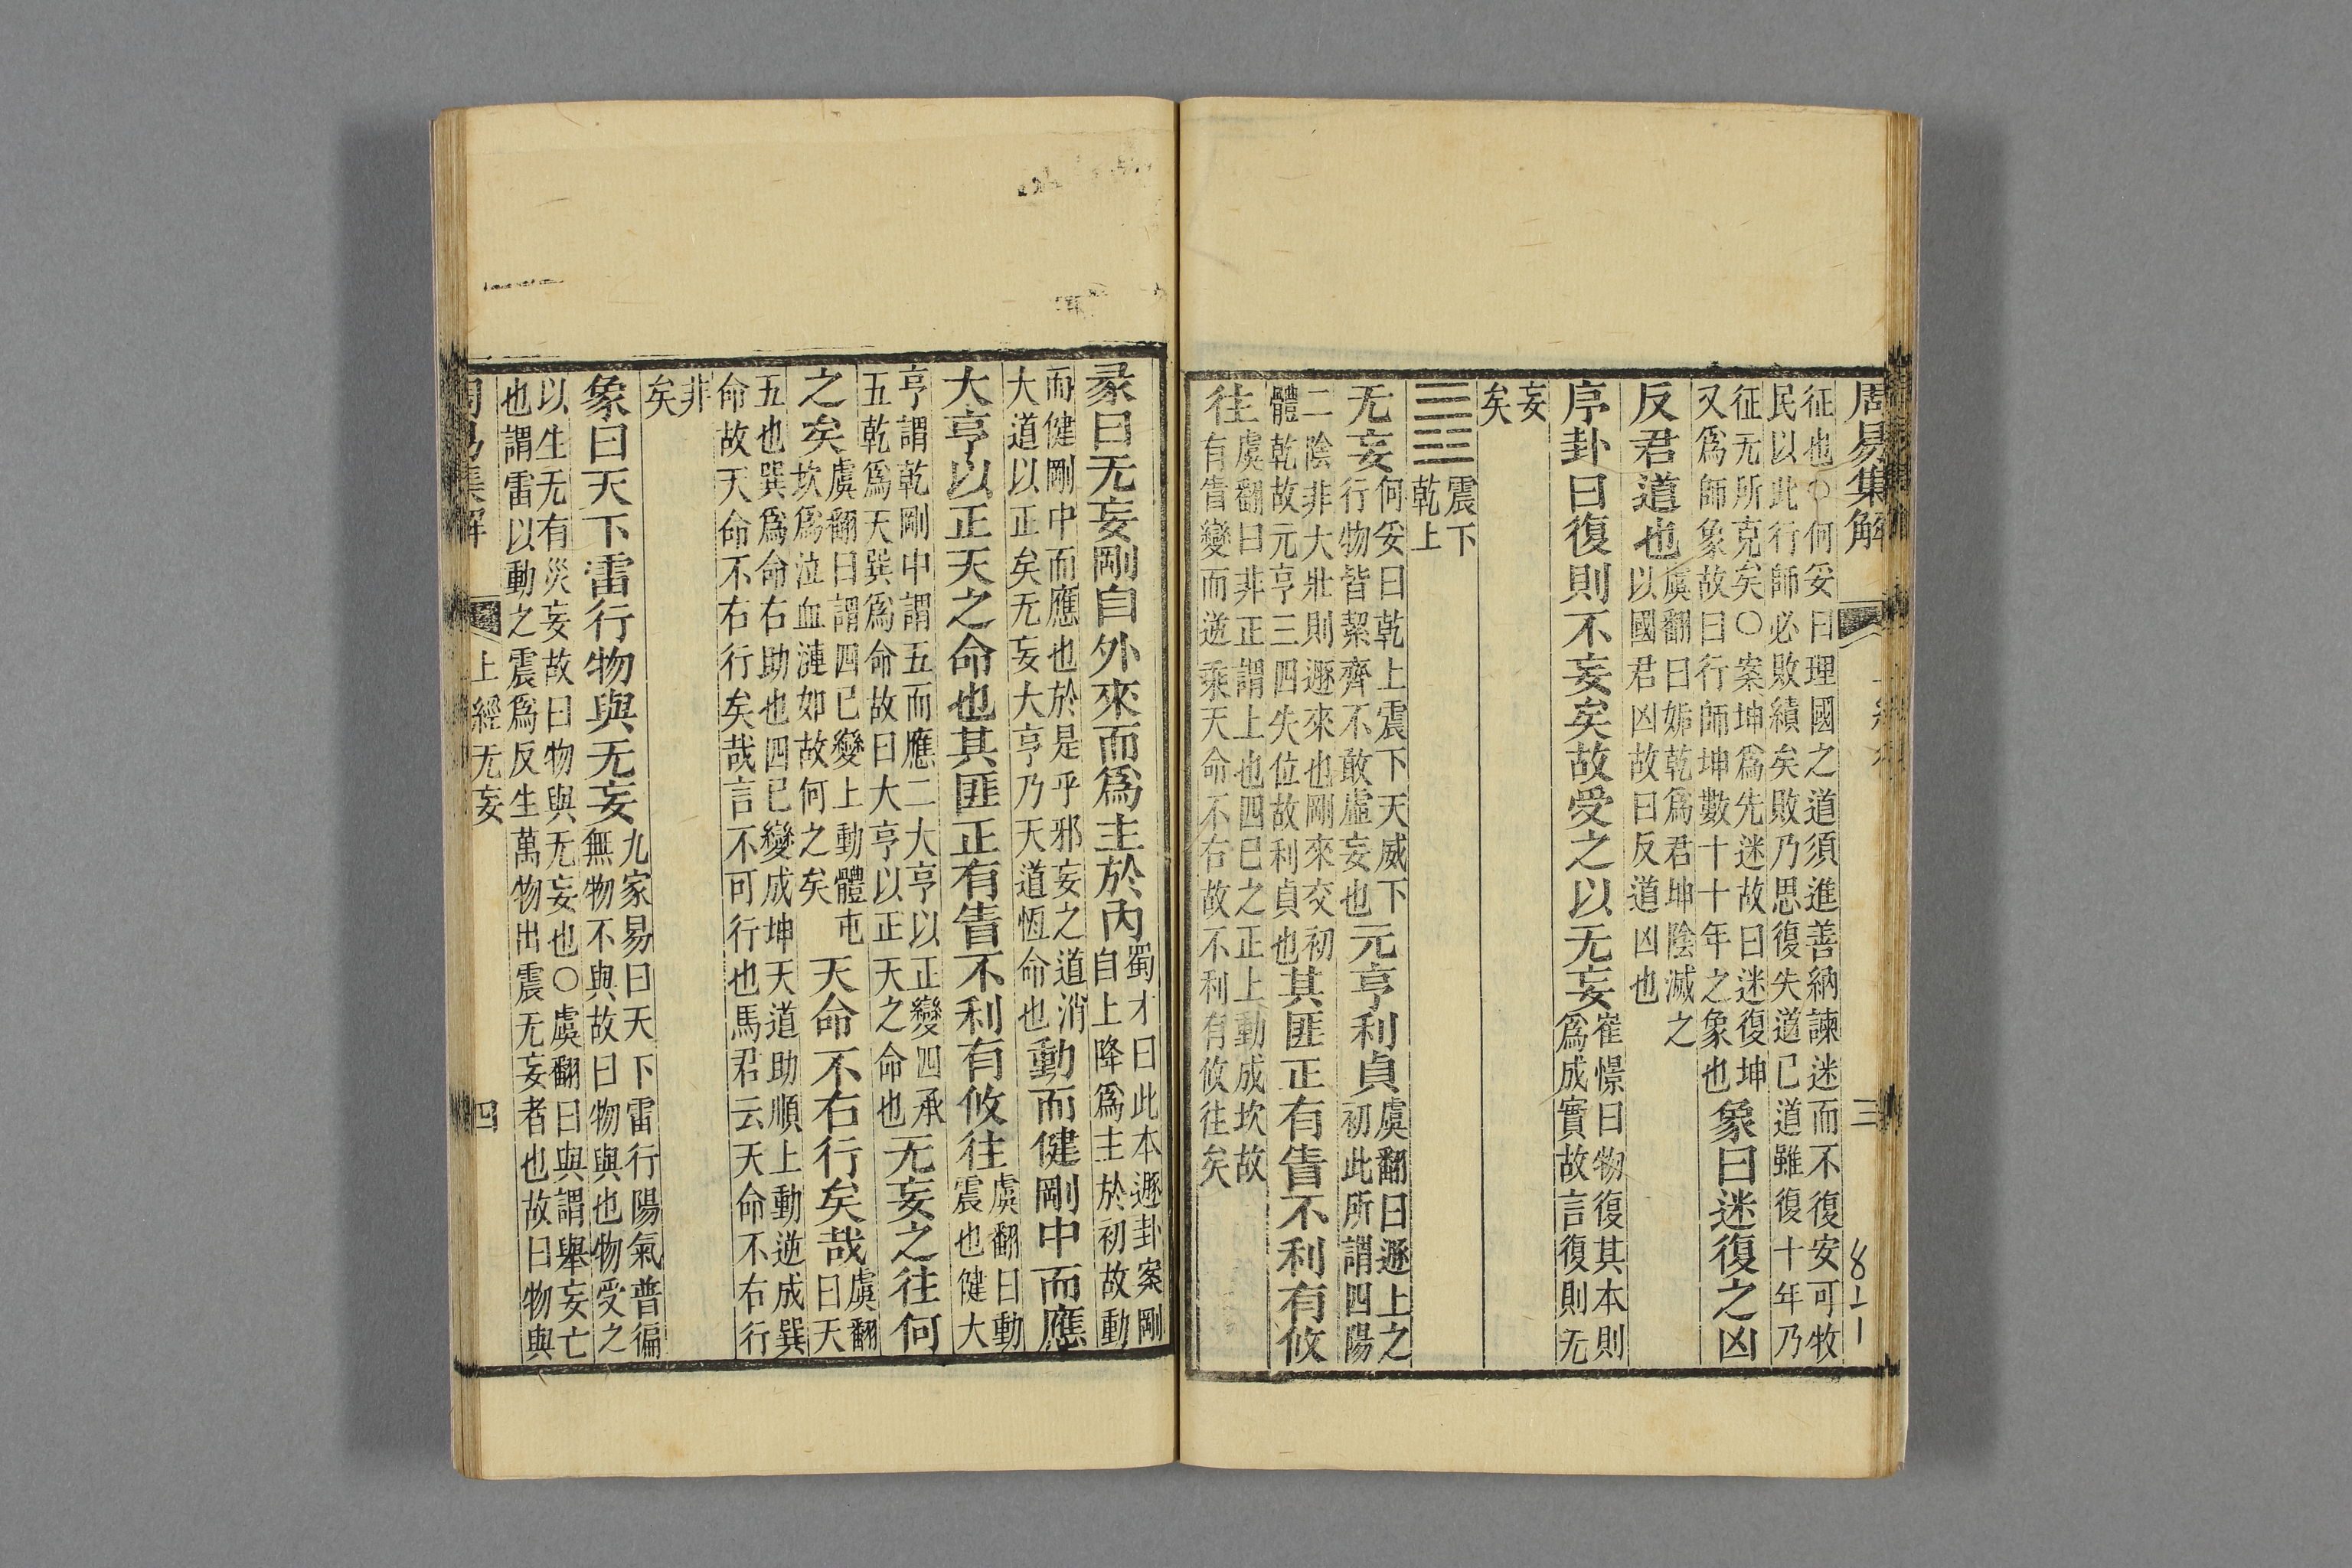 周易集解
三
征也○何妥曰理國之道須進善納諫迷而不復安可牧
民以此行師必敗績矣敗乃思復失道已遠雖復十年乃
征无所克矣○案坤爲先迷故曰迷復坤
又爲師象故曰行師坤數十十年之象也
象曰迷復之凶
反君道也
虞翻曰姤乾爲君坤陰滅之
以國君凶故曰反道凶也
序卦曰復則不妄矣故受之以无妄
崔憬曰物復其本則
爲成實故言復則无
妄
矣
震下
乾上
无妄
何妥曰乾上震下天威下
行物皆絜齊不敢虛妄也
元亨利貞
虞翻曰遯上之
初此所謂四陽
二陰非大壯則遯來也剛來交初
體乾故元亨三四失位故利貞也
其匪正有眚不利有攸
往
虞翻曰非正謂上也四已之正上動成坎故
有眚變而逆乘天命不右故不利有攸往矣
彖曰无妄剛自外來而爲主於內
蜀才曰此本遯卦案剛
自上降爲主於初故動
而健剛中而應也於是乎邪妄之道消
大道以正矣无妄大亨乃天道恆命也
動而健剛中而應
大亨以正天之命也其匪正有眚不利有攸往
虞翻曰動
震也健大
亨謂乾剛中謂五而應二大亨以正變四承
五乾爲天巽爲命故曰大亨以正天之命也
无妄之往何
之矣
虞翻曰謂四已變上動體屯
坎爲泣血漣如故何之矣
天命不右行矣哉
虞翻
曰天
五也巽爲命右助也四已變成坤天道助順上動逆成巽
命故天命不右行矣哉言不可行也馬君云天命不右行
非
矣
象曰天下雷行物與无妄
九家易曰天下雷行陽氣普徧
無物不與故曰物與也物受之
以生无有災妄故曰物與无妄也○虞翻曰與謂舉妄亡
也謂雷以動之震爲反生萬物出震无妄者也故曰物與
周易集解
上經无妄
四